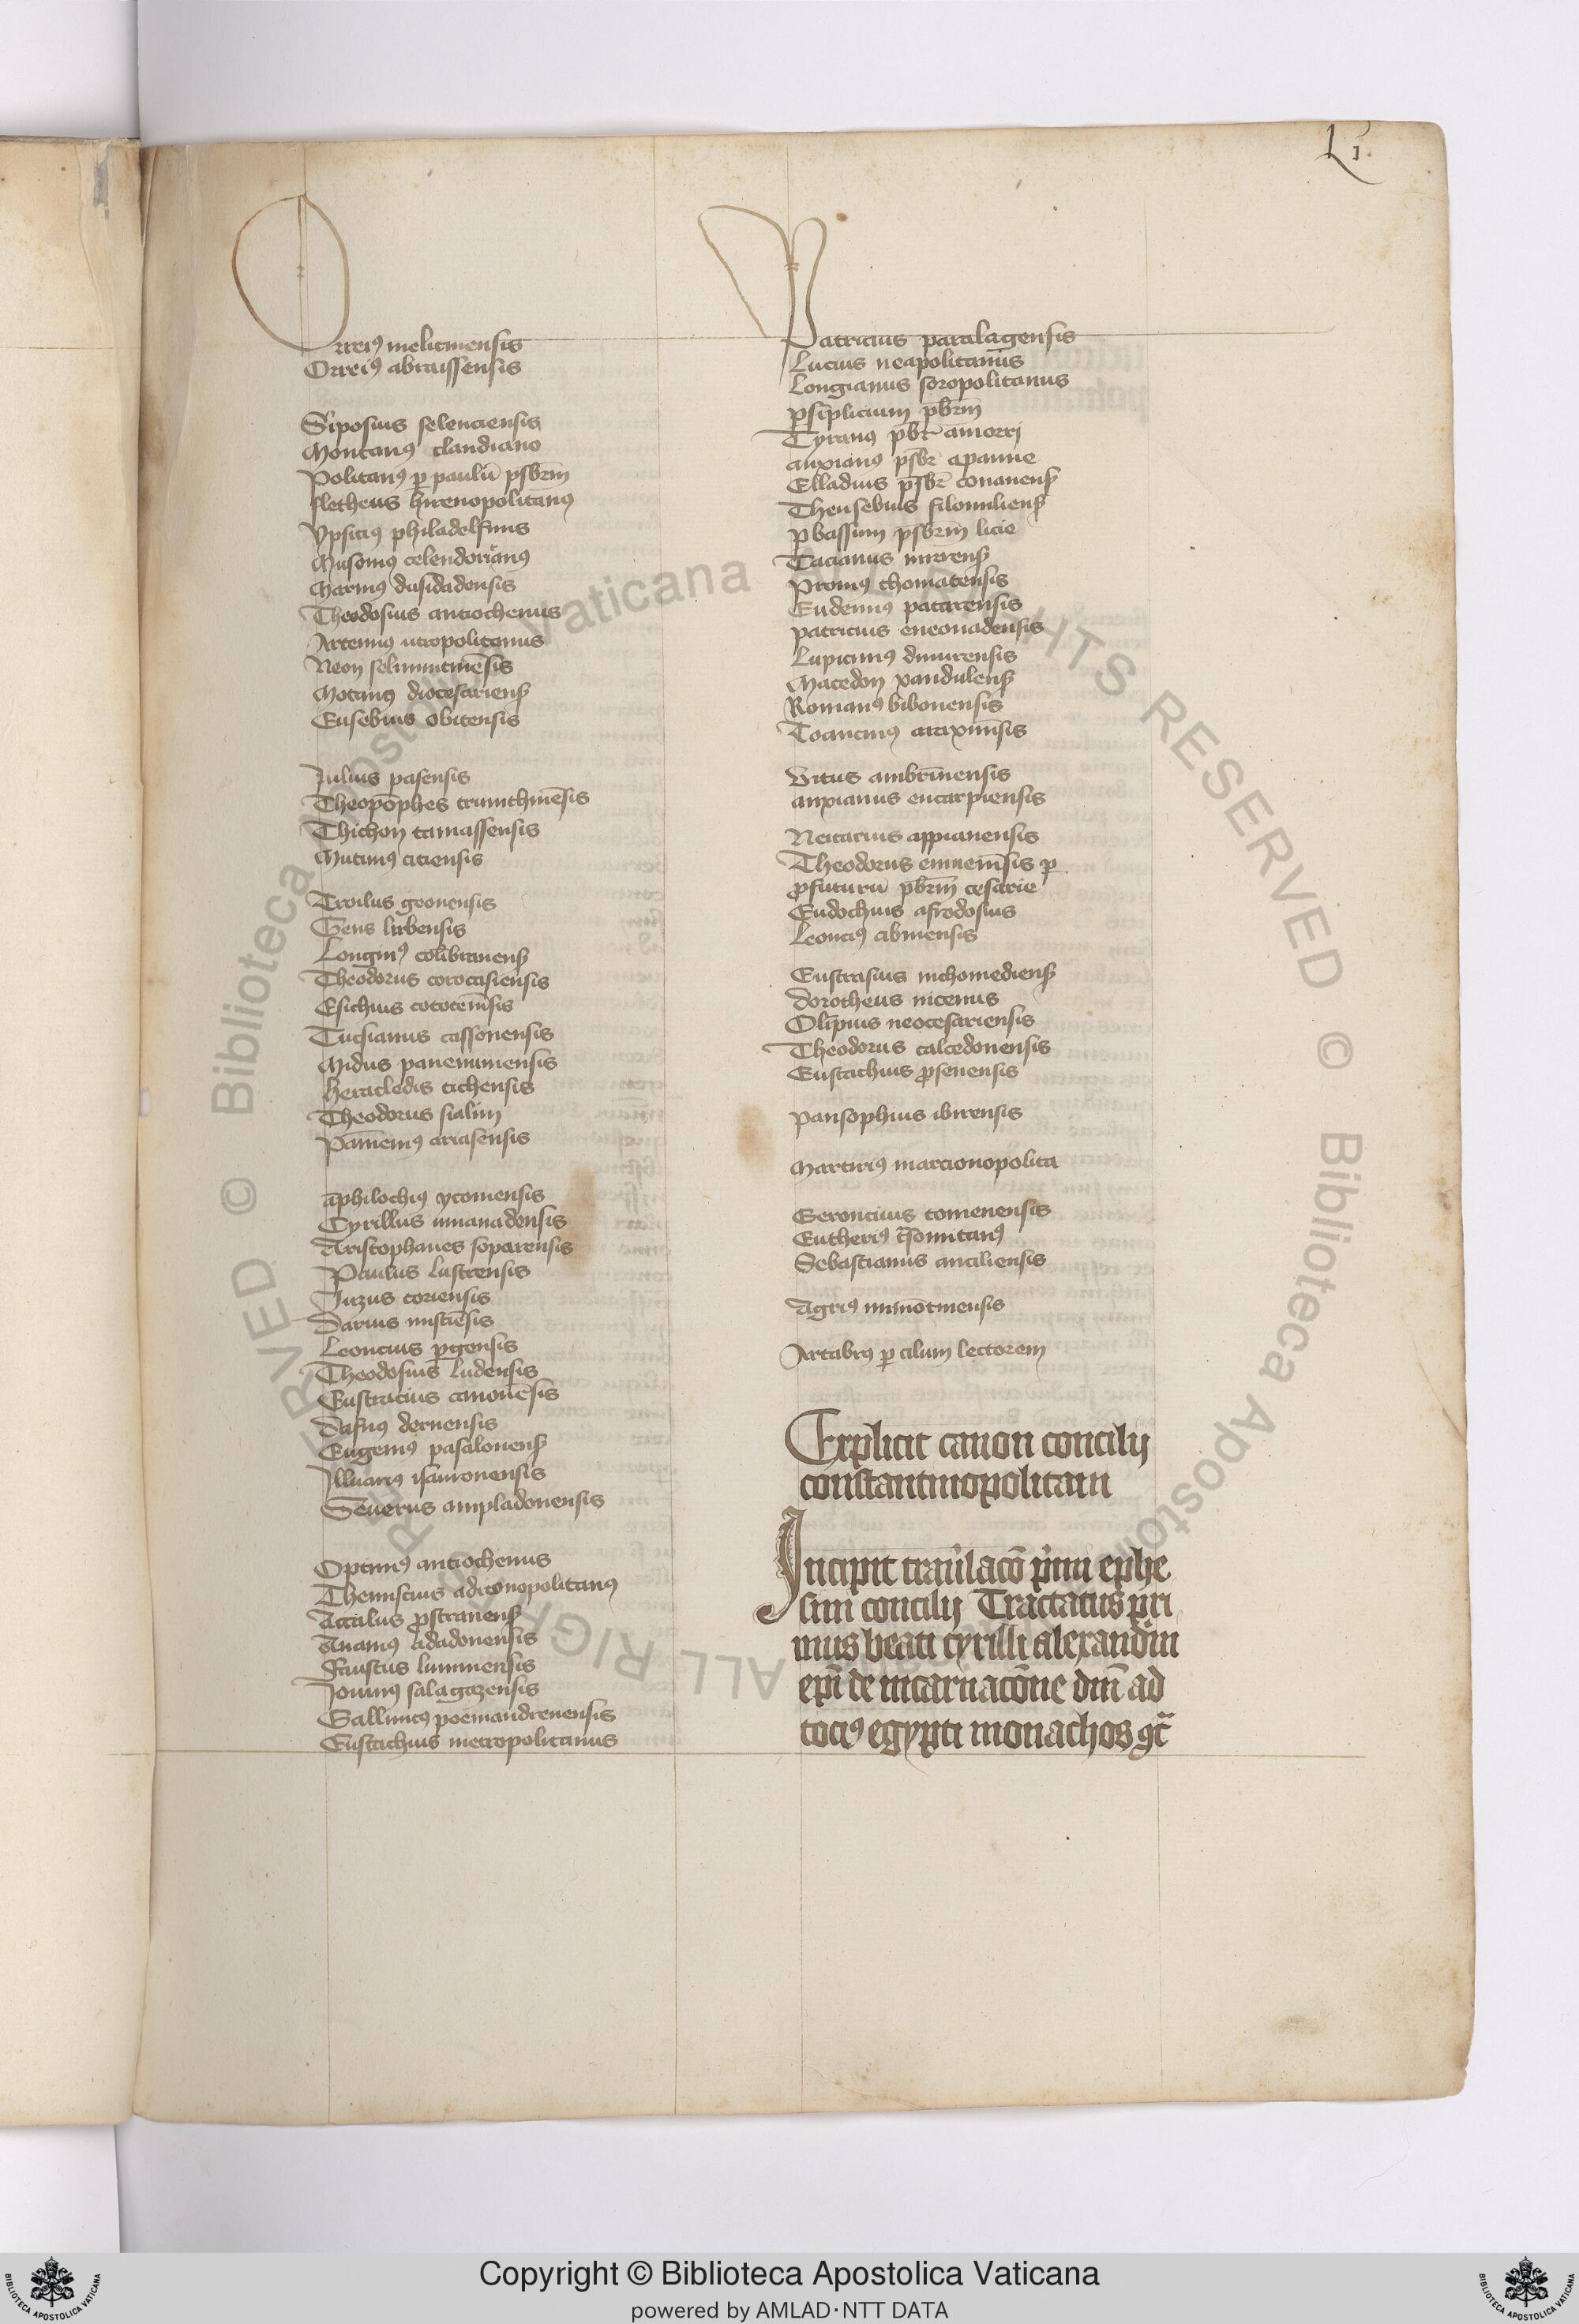 Lı.
Orreıꝰ melitinensis
Orreiꝰ abraissensis
Siposius selenciensis
Montanꝰ claudiano
Politanꝰ ꝑ paulū psbrm̄
filetheus hirenopolitanꝰ
Ypsiciꝰ philadelfinus
Musonꝰ celendorianꝰ
Marinꝰ dasidadensis
Theodosius antiochenus
Artemiꝰ uropolitanus
Neon selinuntinēsis
Motanꝰ diocesariens̄
Eusebius obitensis
Julius pasensis
Theopophes trimthinēsis
Thichon tamassensis
Mutinꝰ citiensis
Troilus geonensis
Gens lirbensis
Longinꝰ colibranens̄
Theodorus corocasiensis
Esichius cototen̄sis
Tucsianus cassonensis
Midus panemunensis
Heracledis tichensis
Theodorus sialim
Pām̄eniꝰ ariasensis
āphilochiꝰ yconiensis
Cyrillus imanadensis
Aristophanes soparensis
Paulus lustrensis
Juzus coriensis
Darius mistiēsis
Leoncius ꝑgensis
Theodosius ludensis
Eustracius canonēsis
Dafnꝰ deruensis
Eugeniꝰ pasalonens̄
Illuariꝰ isauronensis
Seuerus ampladonensis
Optimꝰ antiochenus
Themistius adrionopolitanꝰ
Attalus ꝓstranens̄
Ananiꝰ adadonensis
Faustus lumniensis
Joninꝰ salagazensis
Gallinicꝰ poemandrenensis
Eustachius metropolitanus
Patricius paralagensis
Lucius neapolitanus
Longianus soropolitanus
ꝑ siplicium pb̄rm̄
Tyranꝰ pbr̄ amorri
auxianꝰ psbr̄ apanne
Elladius psbr̄ conanens̄
Theusebius filomiliens̄
ꝑ bassum psbrm̄ licie
Tacianus mirrens̄
Promꝰ thomatensis
Eudemiꝰ patarensis
patricius eneonadensis
Lupicinꝰ dimirensis
Macedon xandulens̄
Romanꝰ bibonensis
Toantinꝰ araximsis
Vitus ambrīnensis
auxianus eucarpiensis
Nectarius appianensis
Theodorus eumenīsis ꝑ
ꝓfuturū pb̄rm̄ cesarie
Eudochius afrodosius
Leonciꝰ cibinensis
Eustrasius nichomediens̄
dorotheus nicenus
Olīpius neocesariensis
Theodorus calcedonensis
Eustachius ꝓsenensis
Pansophius ibirensis
Martiriꝰ marcionopolita
Geroncius tomenensis
Eutheriꝰ tr̄somitanꝰ
Sebastianus anciliensis
Agriꝰ mimōtinensis
Artabrꝰ ꝑ cilum lectorem
Explicit canon concilij
constantinopolitani
Incipit trans̄lacō p̄mi ephe
sini concilij Tractatus pri
mus beati cyrilli alexandrini
ep̄i de incarnacōne dn̄i ad
tociꝰ egypti monachos ꝯt̄
Copyright © Biblioteca Apostolica Vaticana
powered by AMLAD·NTT DATA